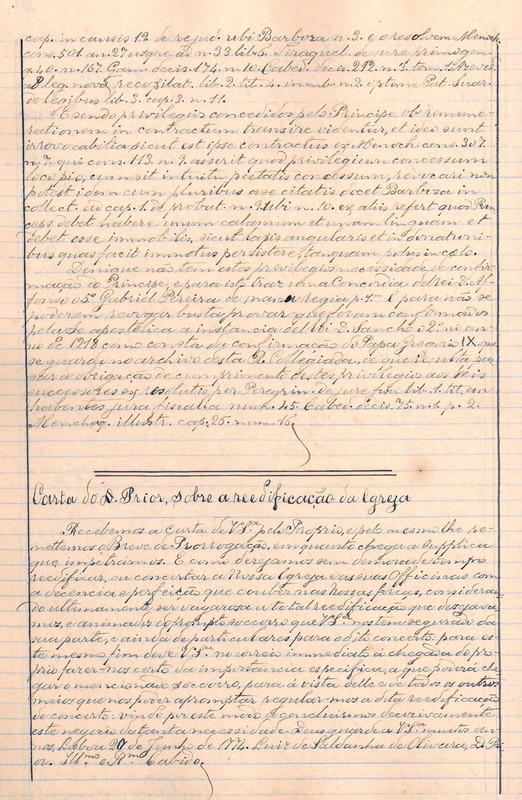 cap. in causis 19. de rejud. ubi Barboza n. 3. e o resolvem Menoch.
cons. 501. an. 27 usque ad n. 33. lib. 6. Tiraquel. de jure primogen.
q. 40. n. 167. Gam. decis. 174. n. 10. Cabed. decis. 212. n. 3. tom. 1. Azeved.
ad leg. nova recopilat. lib. 2. tit. 4. in n. 2. optime Pat. Suar.
de legibus lib. 3. cap. 3. n. 11.
E sendo privilegios concedidos pelo Principe ob remune-
rationem in contractum transire videntur, et ideo sunt
irrovocabilia sicut est ipse contractus ex Menoch. cons. 307.
n. 7. qui cons. 113. n. 9. asserit quod privilegium concessum
loco pio, cum sit intuitu pietatis concessum, revocari non
potest idem cum pluribus a se citatis docet Barbosa in
collect. ad cap. 1. de probat. n. 9. ubi n. 10. ex aliis refert quod Prin-
ceps debet habere unum calamum et unam linguam et
debet esse immobilis, sicut lapis angularis et
quas facit immotus persistere tanquam polus in cœlo.
Denique não tem estes privilegios necessidade de confir-
mação do Principe, e para isto traz uma Concordia del rei D. Af-
fonso o 5º Gabriel Pereira de manu regia p. 1ª E para não se
poderem revogar basta provar que foram confirmados
pela Sé apostolica a instancia del rei D. Sancho 2º no an-
no de 1218 como consta da confirmação do Papa Gregorio IX. que
se guarda no archivo desta R. Collegiada, de que resulta pas-
sar a obrigação de cumprimento destes privilegios aos reis
successores ex resolutis per Peregrin. de jure fisci lib. 1. tit. an
habentes jura fiscalia num. 45. Cabed. decis. 75. n. 1. p. 2.
Menchag. illustr. cap. 25. num. 15.
Carta do D. Prior, sobre a reedificação da Igreja
Recebemos a Carta de V. Sª pelo Proprio, e pelo mesmo lhe re-
mettemos o Breve de Prorrogação, em quanto chega a Supplica
que impetramos. E como desejamos sem demora de tempo
reedificar, ou concertar a Nossa Igreja e as suas Officinas com
a decencia e perfeição que couber nas nossas forças, consideran-
do ultimamente ser vagarosa a total reedificação que dezejava-
mos, e animados do prompto soccorro que V. Sª nos tem segurado da
sua parte, e ainda de particulares para o dito concerto para es-
te mesmo fim deve V. Sª no correio immediato á chegada do pro-
prio fazer-nos certo da importancia especifica, a que poderá che-
gar o mencionado soccorro, para á vista delle e de todos os outros
meios que nos poder apromptar regular-mos a dita reedificação
de concerto: vindo por este modo a concluirmos decisivamente
este negocio de tanta necessidade. Deus guarde a V. Sª muitos an-
nos, Lisboa 20 de Junho de 1774. Luiz de Saldanha de Oliveira, D. Pri-
or. Illmo e Rmo Cabido.